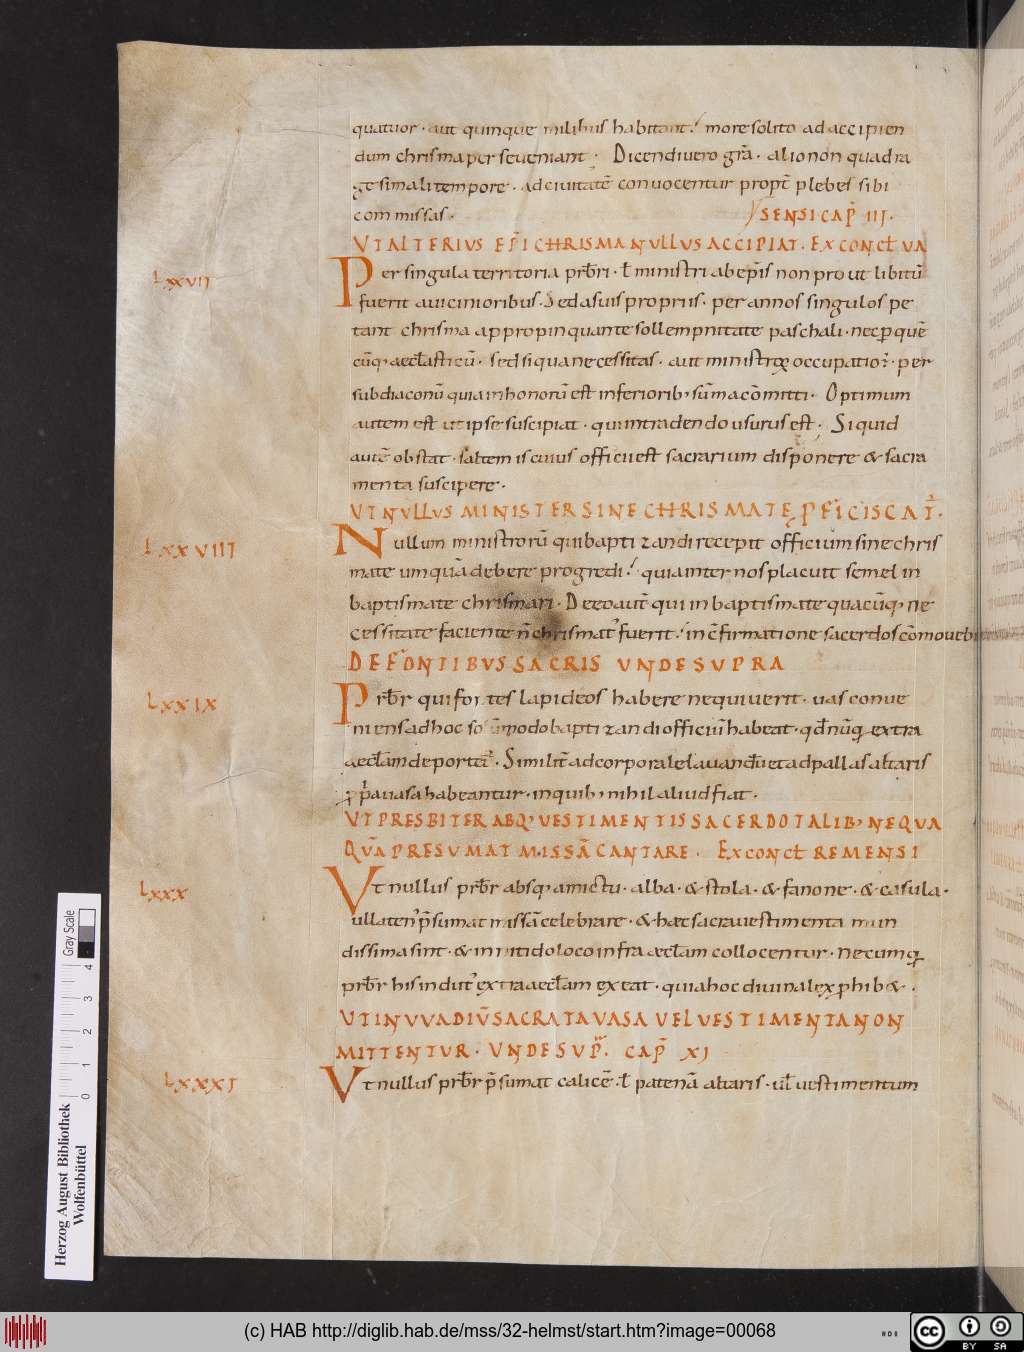 quatuor · aut quinque milibus habitant · more solito ad accipien
dum chrisma per seueniant · Dicendi uero gr̄a · alio non quadra
gesimali tempore · ad ciuitatē conuocentur propt̄ plebes sibi
commissas ·
SENSI CAP̄ III ·
VT ALTERIVS EP̄I CHRISMA NULLUS ACCIPIAT · EX CONCŁ VA
LXXVII
Per singula territoria prb̄ri · ł ministri ab ep̄is non pro ut libitū
fuerit a uicinioribus · Sed a suis propriis · per annos singulos pe
tant chrisma appropinquante sollempnitate paschali · nec ꝑ quē
cūq; aecl̄asticū · sed si qua necessitas · aut ministroꝝ occupatio · per
subdiaconū quia in honorū est inferiorib; sūma cōmitti · Optimum
autem est ut ipse suscipiat · qui in tradendo usurus est · Si quid
autē obstat · saltem is cuius officii est sacrarium disponere & sacra
menta suscipere ·
VT NVLLVS MINISTER SINE CHRISMATE
LXXVIII
Nullum ministrorū qui baptizandi recepit officium sine chris
mate umquā debere progredi · quia inter nos placuit semel in
baptismate chrismari · De eo aut̄ qui in baptismate quacūq; ne
cessitate faciente n̄ chrismat' fuerit · in cōfirmatione sacerdos
DE FONTIBVS SACRIS VNDE SUPRA
LXXIX
Prb̄r qui fontes lapideos habere nequiuerit · uas conue
niens ad hoc solūmodo baptizandi officiū habeat · qd̄ nūq̄ extra
aecl̄am deportet̄ · Similit̄ ad corporale lauandū et ad pallas altaris
ꝓp̄a uasa habeantur · in quib; nihil aliud fiat ·
VT PRESBITER ABQ; VESTIMENTIS SACERDOTALIB; NEQUA
QVĀ PRESUMAT MISSĀ CANTARE · EX CONCŁ REMENSI
LXXX
Vt nullus prb̄r absq; amictu · alba · & stola · & fanone · & casula ·
ullaten' p̄sumat missā celebrare · & haec sacra uestimenta mun
dissima sint · & in nitido loco infra aecl̄am collocentur · Nec umq̄
prb̄r his indut' extra aecl̄am exeat · quia hoc diuina lex ꝓhib& ·
VT IN VVADIŪ SACRATA VASA VEL VESTIMENTA NON
MITTENTVR · VNDE SUP̄ · CAP̄ XI
LXXXI
Vt nullus prb̄r p̄sumat calicē · ł patenā altaris · ul̄ uestimentum
Herzog August Bibliothek
Wolfenbüttel
Gray Scale
0 1 2 3 4
(c) HAB http://diglib.hab.de/mss/32-helmst/start.htm?image=00068
cc BY SA